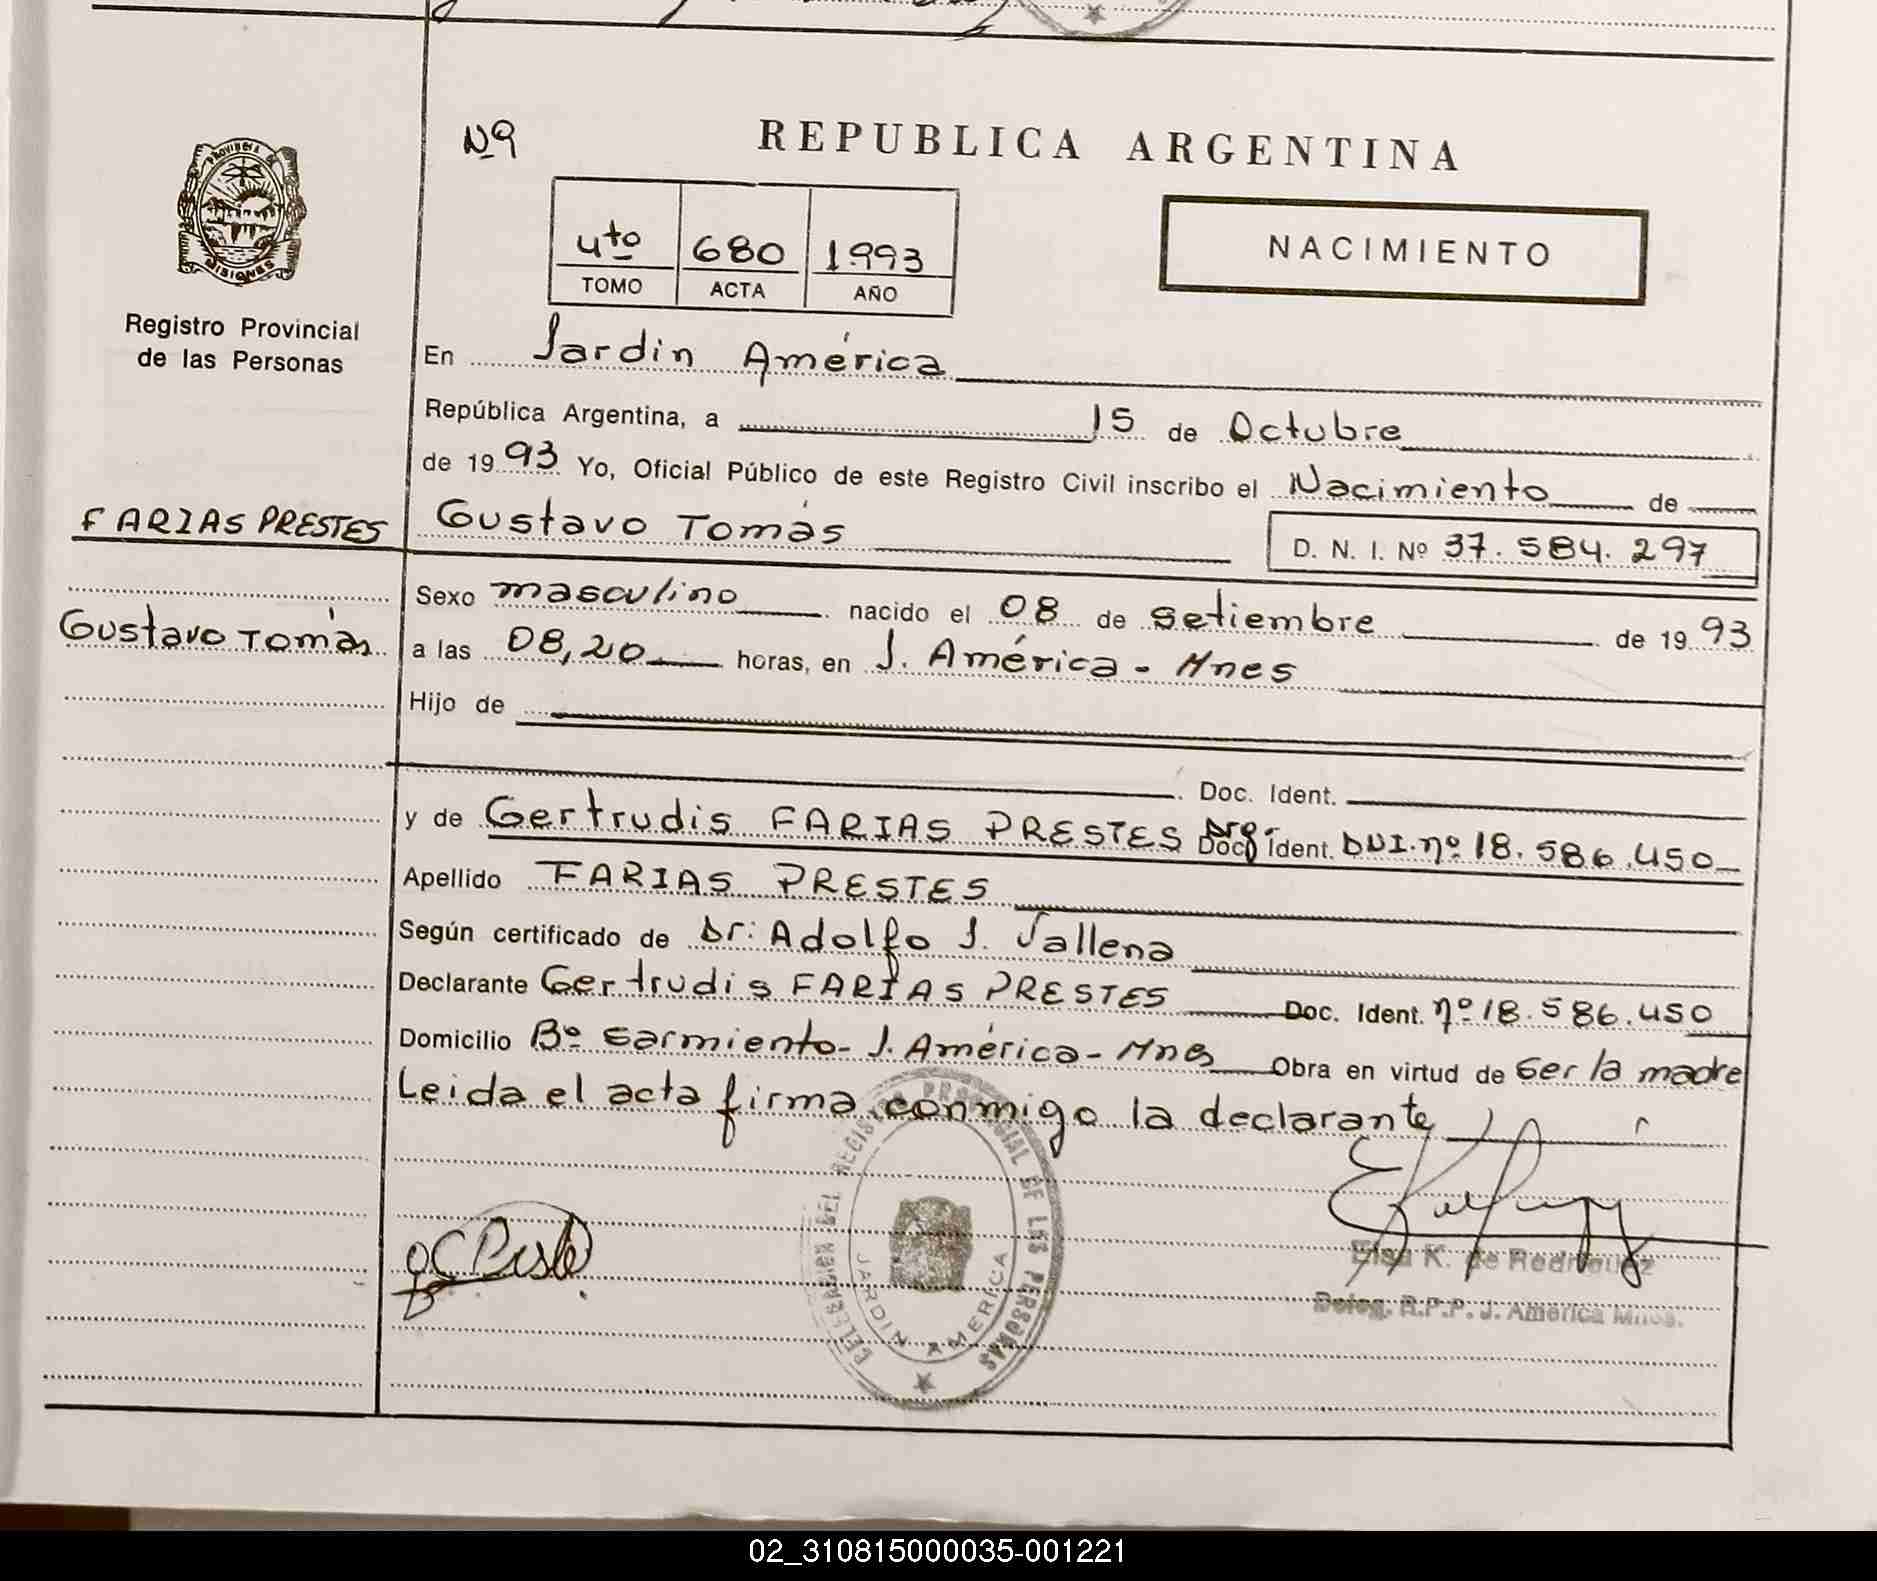 PROVINCIA DE
MISIONES
Registro Provincial
de las Personas
FARIAS PRESTES
Gustavo Tomás
Nº
REPUBLICA ARGENTINA
4to 680 1993
TOMO ACTA AÑO
NACIMIENTO
En Jardin América
República Argentina, a 15 de Octubre
de 1993 Yo, Oficial Público de este Registro Civil inscribo el Nacimiento de
Gustavo Tomás D. N. I. Nº 37.584.297
Sexo masculino nacido el 08 de setiembre de 1993
a las 08,20 horas, en J. América - Mnes
Hijo de
Doc. Ident.
y de Gertrudis FARIAS PRESTES Arg. Doc. Ident. DNI. nº 18.586.450
Apellido FARIAS PRESTES
Según certificado de Dr: Adolfo J. Vallena
Declarante Gertrudis FARIAS PRESTES Doc. Ident. nº 18.586.450
Domicilio Bº Sarmiento - J. América - Mnes Obra en virtud de ser la madre
Leida el acta firma conmigo la declarante
DELEGACION DEL REGISTRO PROVINCIAL DE LAS PERSONAS
JARDIN AMERICA
Elsa K. de Rodriguez
Deleg. R.P.P. J. América Mnes.
02_310815000035-001221